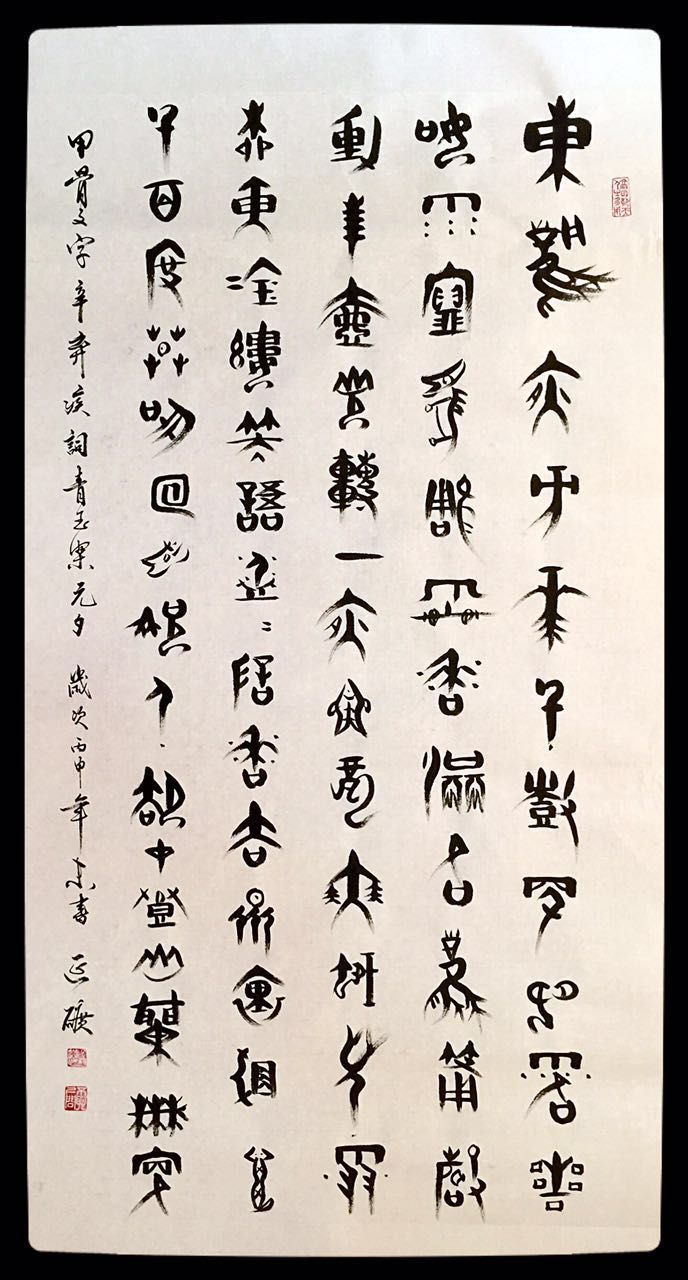 東風夜放花千樹更吹落星
如雨寶馬雕車香滿路鳳簫聲
動玉壺光轉一夜魚龍舞蛾兒雪
柳黃金縷笑語盈〻暗香去眾裏尋他
千百度驀然回首那人卻在燈火闌珊處
甲骨文字辛弃疾詞青玉案元夕 歲次丙申年末書